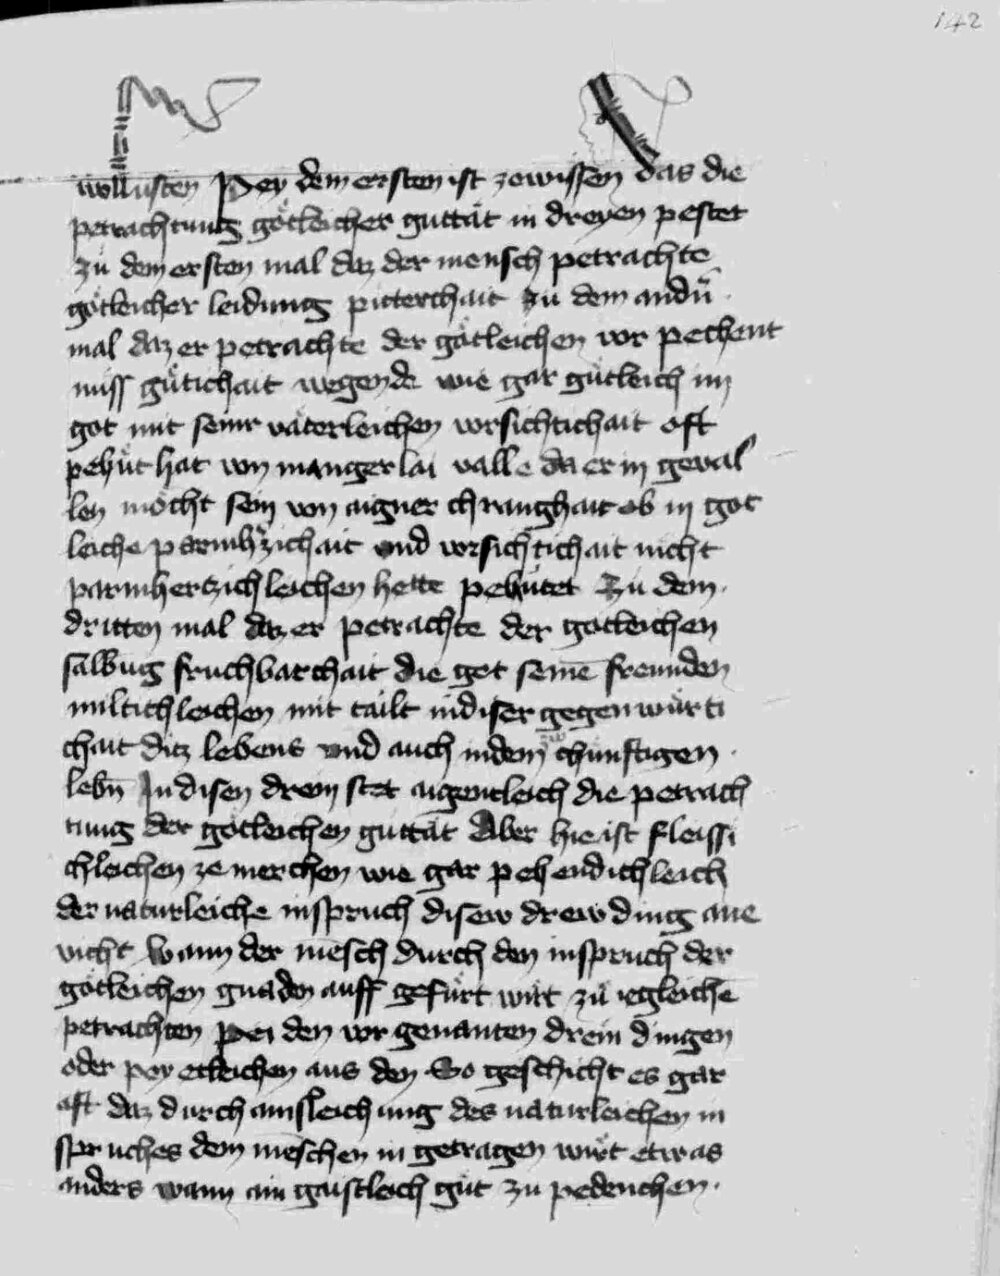 142
wollusten Pey dem ersten ist zewissen das die
petrachtung gotleicher guttät in dreyen pestet
zu dem ersten mal daz der mensch petrachte
gotleicher leidung pitterchait zu dem andn̄
mal daz er petrachte der gotleichen vor pechent
nuss gütichait wegende wie gar gütleich in
got mit seiner väterleichen vorsichtichait oft
pehüt hat von mangerlai valle da er in geval
len möcht sein von aigner chranghait ob in got
leiche parmhʼzichait und vorsichtichait nicht
parmherzichleichen hette pehütet Zu dem
dritten mal daz er petrachte der gotleichen
salbūg fruchbarchait die got seinē freunden
miltichleichen mit tailt in diser gegenwürti
chait ditz lebens und auch in dem chünftigen
lebn̄ In disen drein stet aigentleich die petrach
tung der gotleichen guttät Aber hie ist fleissi
chleichen ze merchen wie gar pehendichleich
der naturleiche inspruch disew drew ding ane
vicht Wann der mēsch durch den inspruch der
gotleichen gnaden auff gefürt wirt zu iegleichē
petrachten Pei den vor genanten drein dingen
oder pey etleichen aus den So geschicht es gar
oft daz durch ainsleichung des naturleichen in
spruches dem menschen in getragen wirt etwas
anders wann ain gaistleich güt zu pedenchen